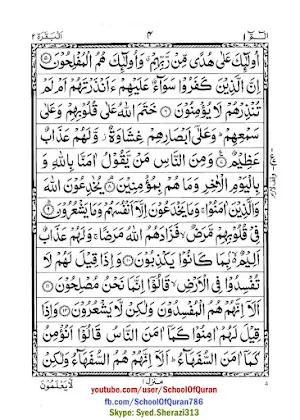 الٓمّٓ ١
٤
اَلْبَقَرَة ٢
اُولٰٓئِكَ عَلٰى هُدًى مِّنْ رَّبِّهِمْ ۗ وَاُولٰٓئِكَ هُمُ الْمُفْلِحُوْنَ ۝٥
اِنَّ الَّذِيْنَ كَفَرُوْا سَوَآءٌ عَلَيْهِمْ ءَاَنْذَرْتَهُمْ اَمْ لَمْ
تُنْذِرْهُمْ لَا يُؤْمِنُوْنَ ۝٦ خَتَمَ اللّٰهُ عَلٰى قُلُوْبِهِمْ وَعَلٰى
سَمْعِهِمْ ؕ وَعَلٰٓى اَبْصَارِهِمْ غِشَاوَةٌ ؗ وَّلَهُمْ عَذَابٌ
عَظِيْمٌ ۝٧ وَمِنَ النَّاسِ مَنْ يَّقُوْلُ اٰمَنَّا بِاللّٰهِ وَ
بِالْيَوْمِ الْاٰخِرِ وَمَا هُمْ بِمُؤْمِنِيْنَ ۝٨ يُخٰدِعُوْنَ اللّٰهَ
وَالَّذِيْنَ اٰمَنُوْا ۚ وَمَا يَخْدَعُوْنَ اِلَّآ اَنْفُسَهُمْ وَمَا يَشْعُرُوْنَ ۝٩
فِيْ قُلُوْبِهِمْ مَّرَضٌ ۙ فَزَادَهُمُ اللّٰهُ مَرَضًا ۚ وَلَهُمْ عَذَابٌ
اَلِيْمٌۢ ۙ بِمَا كَانُوْا يَكْذِبُوْنَ ۝١٠ وَاِذَا قِيْلَ لَهُمْ لَا
تُفْسِدُوْا فِي الْاَرْضِ ۙ قَالُوْٓا اِنَّمَا نَحْنُ مُصْلِحُوْنَ ۝١١
اَلَآ اِنَّهُمْ هُمُ الْمُفْسِدُوْنَ وَلٰكِنْ لَّا يَشْعُرُوْنَ ۝١٢ وَاِذَا
قِيْلَ لَهُمْ اٰمِنُوْا كَمَآ اٰمَنَ النَّاسُ قَالُوْٓا اَنُؤْمِنُ
كَمَآ اٰمَنَ السُّفَهَآءُ ؕ اَلَآ اِنَّهُمْ هُمُ السُّفَهَآءُ وَلٰكِنْ
لَّا يَعْلَمُوْنَ
منزل ١
youtube.com/user/SchoolOfQuran
fb.com/SchoolOfQuran786
Skype: Syed.Sherazi313